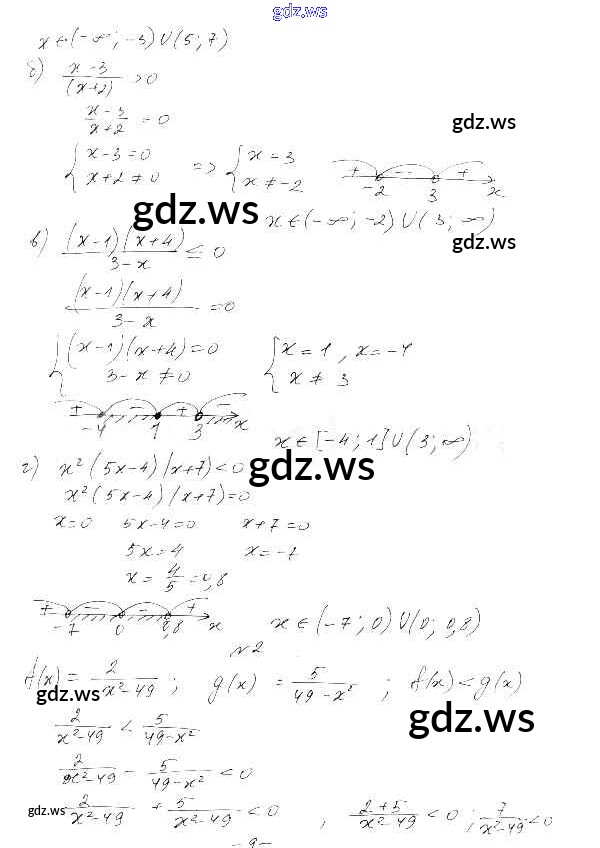 gdz.ws
x ∈ (-∞; -3) ∪ (5; 7)
б) (x-3)/(x+2) > 0
(x-3)/(x+2) = 0
gdz.ws
{ x-3=0 ; x+2≠0 => { x=3 ; x≠-2
+ - + -2 3 x
gdz.ws
x ∈ (-∞; -2) ∪ (3; ∞)
gdz.ws
в) (x-1)(x+4)/(3-x) ≤ 0
(x-1)(x+4)/(3-x) = 0
{ (x-1)(x+4)=0 ; 3-x≠0 { x=1, x=-4 ; x≠3
+ - + - -4 1 3 x
x ∈ [-4; 1] ∪ (3; ∞)
gdz.ws
г) x²(5x-4)(x+7)<0
x²(5x-4)(x+7)=0
x=0 5x-4=0 x+7=0
5x=4 x=-7
x = 4/5 = 0,8
+ - - + -7 0 0,8 x
x ∈ (-7; 0) ∪ (0; 0,8)
№2
f(x) = 2/(x²-49) ; g(x) = 5/(49-x²) ; f(x)<g(x)
gdz.ws
2/(x²-49) < 5/(49-x²)
gdz.ws
2/(x²-49) - 5/(49-x²) < 0
gdz.ws
2/(x²-49) + 5/(x²-49) < 0 , (2+5)/(x²-49) < 0 ; 7/(x²-49) < 0
-9-